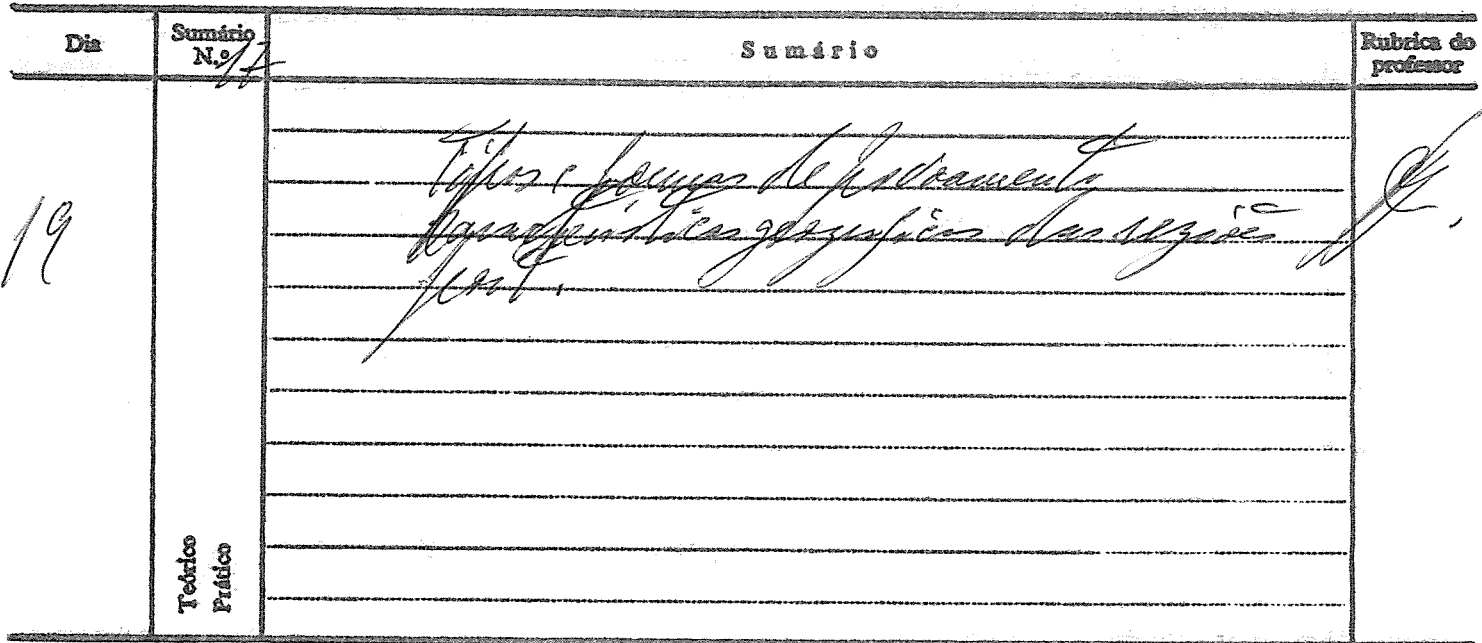 Dia
Sumário
N.º 17
Sumário
Rubrica do
professor
19
Tipos e formas de povoamento
Características geográficas das regiões
Teórico
Prático